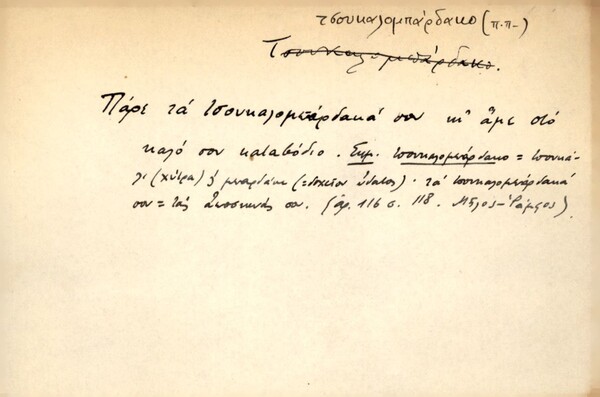 τσουκαλομπάρδακο (π.π-)
Τσουκαλομπάρδακο.
Πάρε τά τσουκαλομπάρδακά σου κι' ἄμε στό
καλό σου καταβόδιο. Σημ. τσουκαλομπάρδακο = τσουκά-
λι (χύτρα) ἤ μπαρδάκι (=δοχεῖον ὕδατος). τά τσουκαλομπάρδακά
σου = τάς ἀποσκευάς σου. (ἀρ. 116 σ. 118. Μῆλος-Ράμφος)